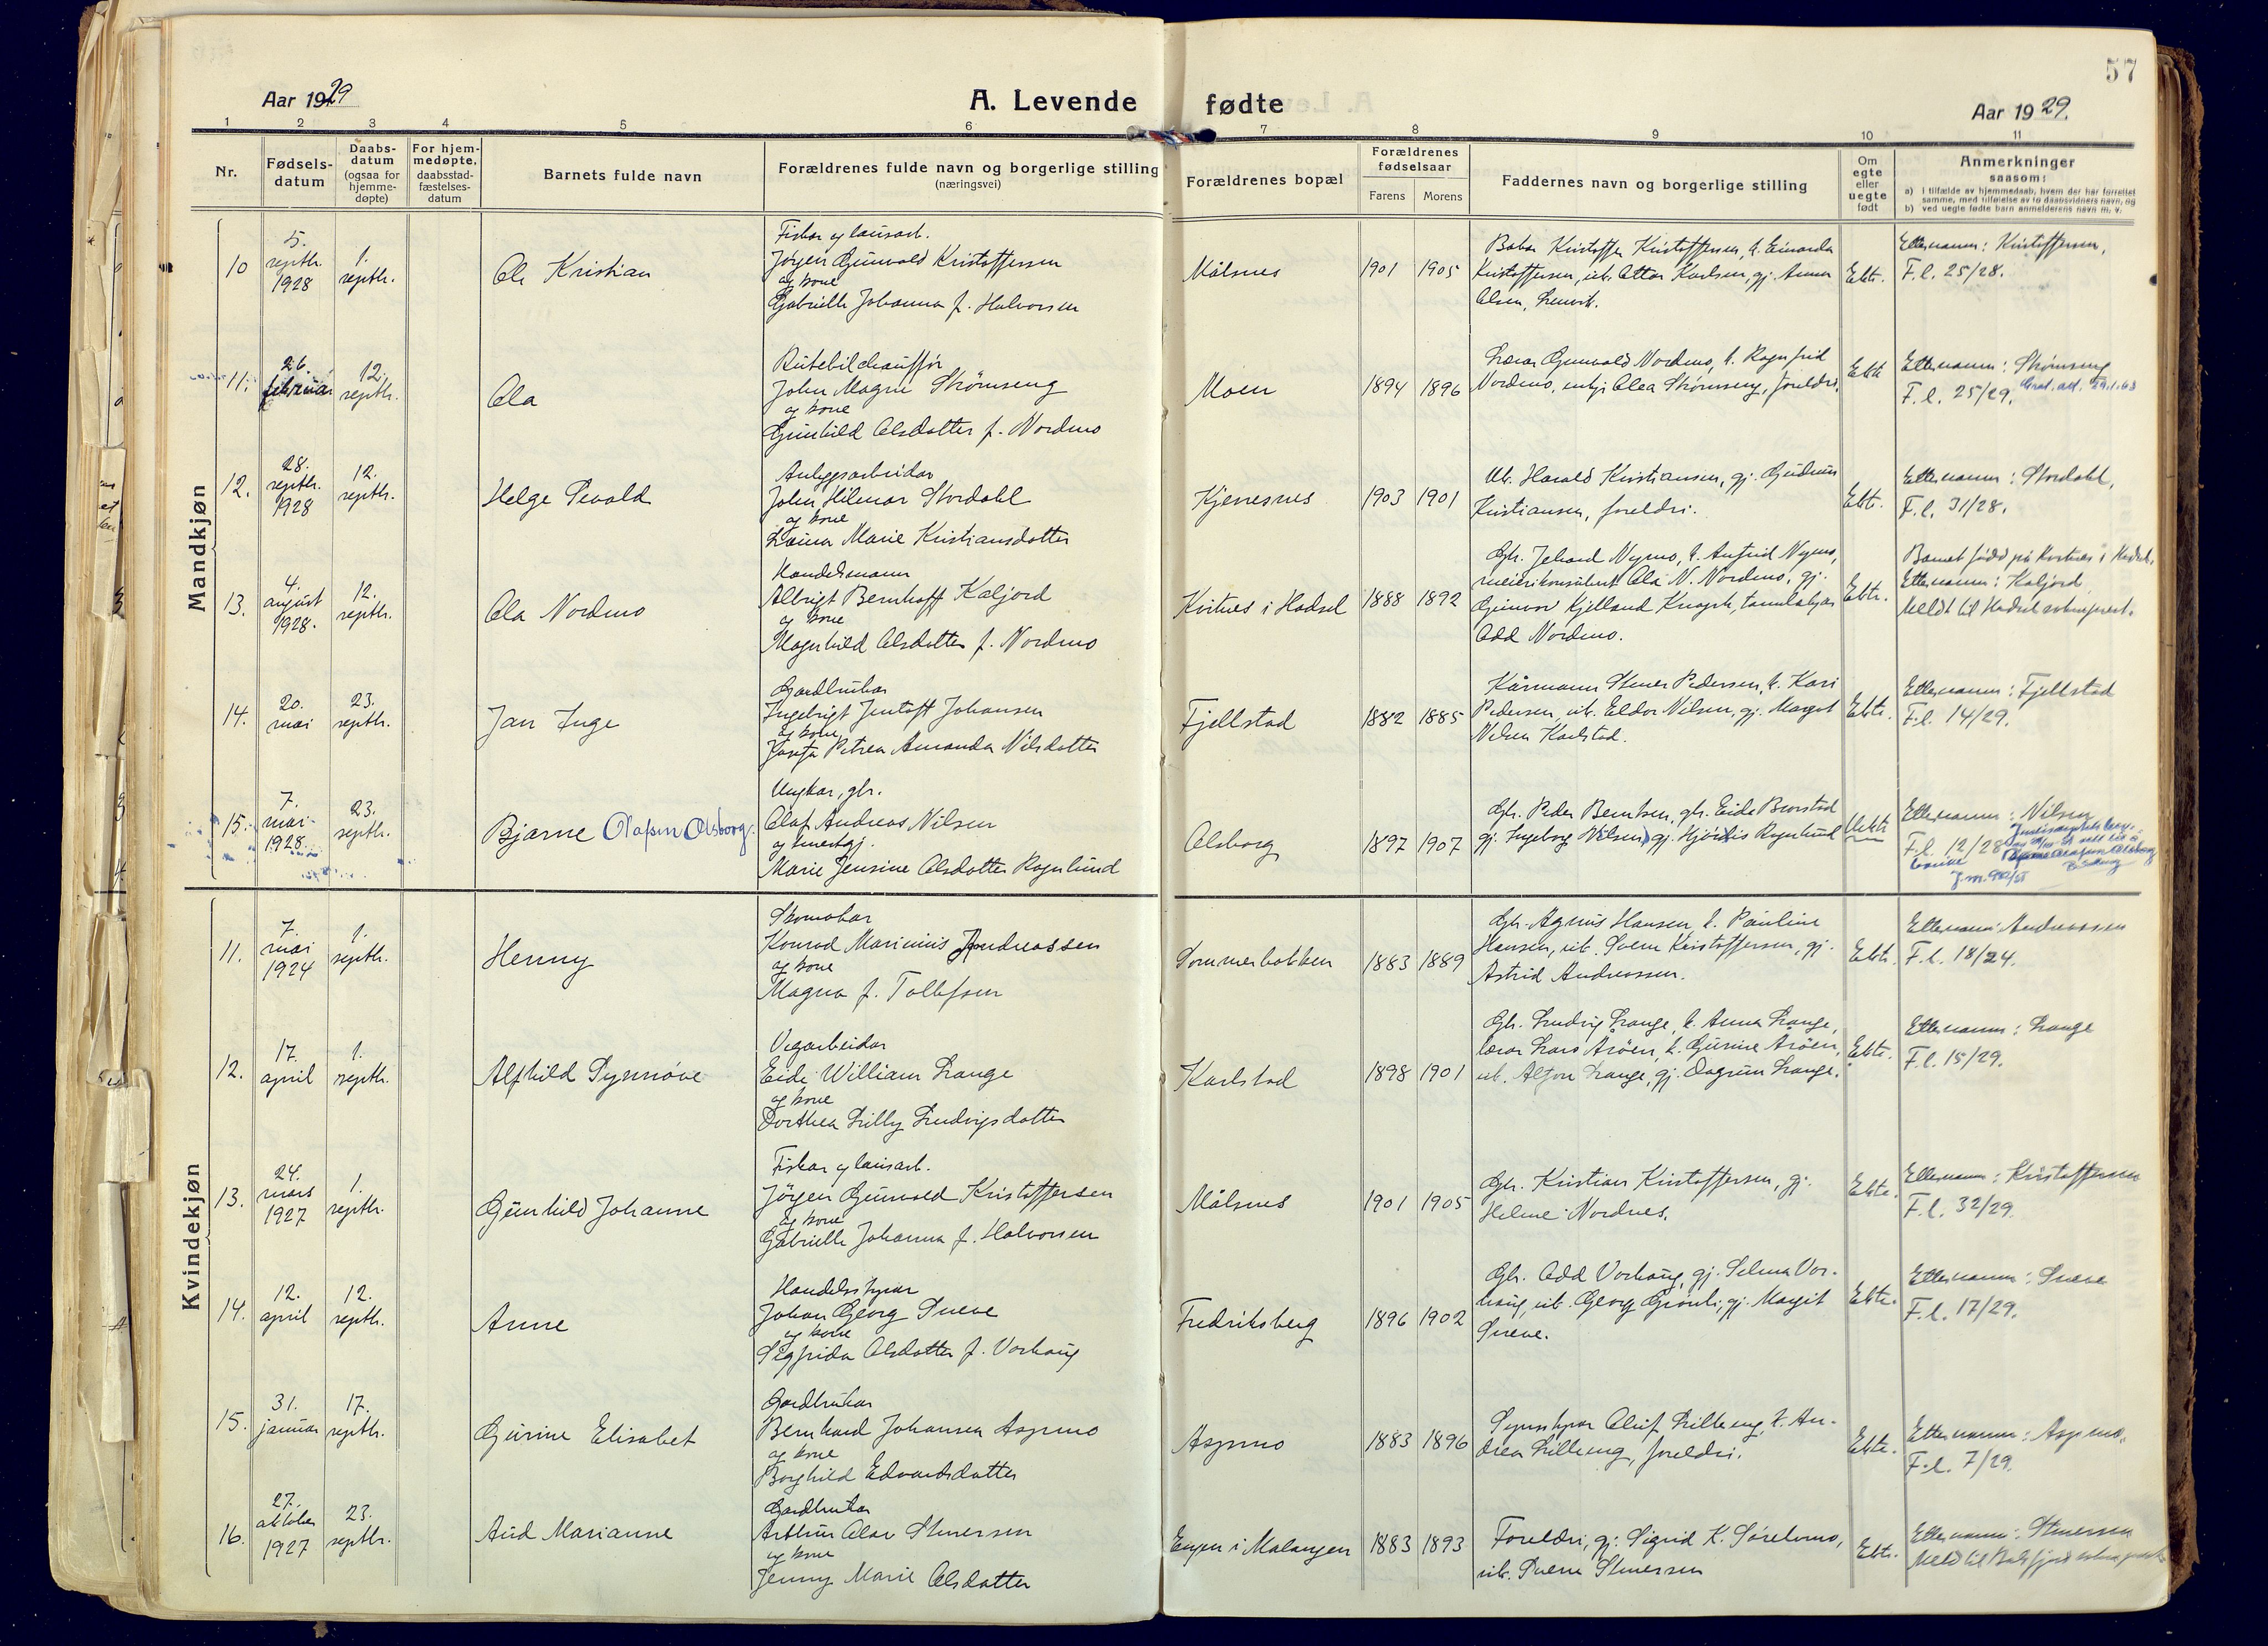 57
Aar 1929
A. Levende fødte
Aar 1929.
1 2 3 4 5 6 7 8 9 10 11
Nr.
Fødsels-
datum
Daabs-
datum
(ogsaa for
hjemme-
døpte)
For hjem-
medøpte,
daabsstad-
fæstelses-
datum
Barnets fulde navn
Forældrenes fulde navn og borgerlige stilling
(næringsvei)
Forældrenes bopæl
Forældrenes
fødselsaar
Farens Morens
Faddernes navn og borgerlige stilling
Om
egte
eller
uegte
født
Anmerkninger
saasom:
a) i tilfælde av hjemmedaab, hvem der har forrettet
samme, med tilføielse av to daabsvidners navn, og
b) ved uegte fødte barn anmelderens navn m. v.
Mandkjøn
10
5.
septbr.
1928
1.
septbr.
Ole Kristian
Fiskar og lausarb.
Jørgen Gunvald Kristoffersen
og kone
Gabrielle Johanna f. Halvorsen
Målsnes
1901 1905
Kristoffer Kristoffersen, k. Einarda
Kristoffersen, uk. Ottar Karlsen, gj. Anna
Olsen, Lenvik.
Ekte.
Ettenamn: Kristoffersen,
F.l. 25/28.
11.
26.
februar
12.
septbr.
Ola
Rutebilchauffør
John Magne Strømseng
og kone
Gunhild Olsdatter f. Nordmo
Moen
1894 1896
Lærar Gunvald Nordmo, k. Ragnfrid
Nordmo, enkje Olea Strømseng, foreldri.
Ekte
Ettenamn: Strømseng
F.l. 25/29. 29.1.63
12.
28.
septbr.
1928
12.
septbr.
Helge Sevald
Anleggsarbeidar
John Hilmar Stordahl
og kone
Laura Marie Kristiansdatter
Kjenesnes
1903 1901
Uk. Harald Kristiansen, gj. Gudrun
Kristiansen, foreldri.
Ekte.
Ettenamn: Stordahl,
F.l. 31/28.
13.
4.
august
1928.
12.
septbr.
Ola Nordmo
Handelsmann
Albrigt Bernhoff Kaljord
og kone
Magnhild Olsdatter f. Nordmo
Kvitnes i Hadsel
1888 1892
Gbr. Jehard Nymo, k. Anfrid Nymo,
meierikonsulent Ola N. Nordmo, gj.
Gunvor Kjelland Knaph, tannlækjar
Odd Nordmo.
Ekte.
Barnet fødd på Kvitnes i Hadsel,
Ettenamn: Kaljord
Meldt til Hadsel sokneprest.
14.
20.
mai
23.
septbr.
Jan Inge
Gardbrukar
Ingebrigt Jentoft Johansen
og kone
Josefa Petrea Amanda Nilsdatter
Fjellstad
1882 1885
Kårmann Stener Pedersen, k. Kari
Pedersen, uk. Eldor Nilsen, gj. Margot
Nilsen Karlstad.
Ekte.
Ettenamn: Fjellstad
F.l. 14/29.
15.
7.
mai
1928.
23.
septbr.
Bjarne Olafsen Olsborg.
Ungkar, gbr.
Olaf Andreas Nilsen
og
Marie Jensine Olsdatter Rognlund
Olsborg
1897 1907
Gbr. Peder Berntsen, gbr. Eide Brorstad
gj. Ingeborg Nilsen, gj. Hjørdis Rognlund
Uekte
Ettenamn: Nilsen
F.l. 12/28
Kvindekjøn
11.
7.
mai
1924
1.
septbr.
Henny
Skomakar
Konrad Marinius Andreassen
og kone
Magna f. Tollefsen
Sommerbakken
1883 1889
Gbr. Agnus Hansen, k. Pauline
Hansen, uk. Svein Kristoffersen, gj.
Astrid Andreassen.
Ekte.
Ettenamn: Andreassen
F.l. 18/24.
12.
17.
april
1.
septbr.
Alfhild Synnøve
Vegarbeidar
Eide William Lange
og kone
Dorthea Lilly Ludvigsdatter
Karlstad
1898 1901
Gbr. Ludvig Lange, k. Anna Lange,
lærar Lars Arøen, k. Gurine Arøen,
uk. Alfon Lange, gj. Dagrun Lange.
Ekte.
Ettenamn: Lange
F.l. 15/29.
13.
24.
mars
1927
1.
septbr.
Gunhild Johanne
Fiskar og lausarb.
Jørgen Gunvald Kristoffersen
og kone
Gabrielle Johanna f. Halvorsen
Målsnes
1901 1905
Gbr. Kristian Kristoffersen, gj.
Helene Nordnes.
Ekte.
Ettenamn: Kristoffersen
F.l. 32/29.
14.
12.
april
12.
septbr.
Anne
Handelsstyrar
Johan Georg Sneve
og kone
Sigfrida Olsdatter f. Vorhaug
Fredriksberg
1896 1902
Gbr. Odd Vorhaug, gj. Selma Vor-
haug, uk. Georg Grønli, gj. Margit
Sneve.
Ekte.
Ettenamn: Sneve
F.l. 17/29.
15.
31.
januar
17.
septbr.
Gurine Elisabet
Gardbrukar
Bernhard Johansen Aspmo
og kone
Borghild Edvardsdatter
Aspmo
1883 1896
Oluf Lilleeng, k. An-
drea Lilleeng, foreldri.
Ekte.
Ettenamn: Aspmo.
F.l. 7/29.
16.
27.
oktober
1927
23.
septbr.
Aud Marianne
Gardbrukar
Arthur Olav Stenersen
og kone
Jenny Marie Olsdatter
Engen i Malangen
1883 1893
Foreldri, gj. Sigrid K. Sørelvmo,
uk. Sverre Stenersen
Ekte.
Ettenamn: Stenersen
Meld til Balsfjord sokneprest